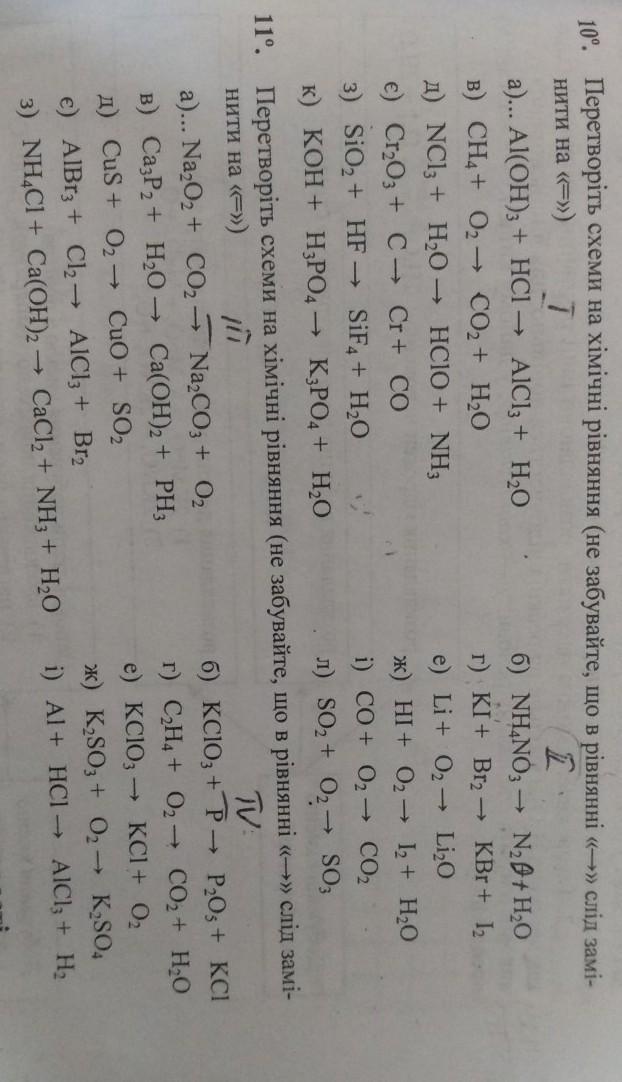 10°. Перетворіть схеми на хімічні рівняння (не забувайте, що в рівнянні «→» слід замі-
нити на «=»)
I II
а)... Al(OH)₃ + HCl → AlCl₃ + H₂O б) NH₄NO₃ → N₂O + H₂O
в) CH₄ + O₂ → CO₂ + H₂O г) KI + Br₂ → KBr + I₂
д) NCl₃ + H₂O → HClO + NH₃ е) Li + O₂ → Li₂O
є) Cr₂O₃ + C → Cr + CO ж) HI + O₂ → I₂ + H₂O
з) SiO₂ + HF → SiF₄ + H₂O і) CO + O₂ → CO₂
к) KOH + H₃PO₄ → K₃PO₄ + H₂O л) SO₂ + O₂ → SO₃
11°. Перетворіть схеми на хімічні рівняння (не забувайте, що в рівнянні «→» слід замі-
нити на «=»)
III IV
а)... Na₂O₂ + CO₂ → Na₂CO₃ + O₂ б) KClO₃ + P → P₂O₅ + KCl
в) Ca₃P₂ + H₂O → Ca(OH)₂ + PH₃ г) C₂H₄ + O₂ → CO₂ + H₂O
д) CuS + O₂ → CuO + SO₂ е) KClO₃ → KCl + O₂
є) AlBr₃ + Cl₂ → AlCl₃ + Br₂ ж) K₂SO₃ + O₂ → K₂SO₄
з) NH₄Cl + Ca(OH)₂ → CaCl₂ + NH₃ + H₂O і) Al + HCl → AlCl₃ + H₂